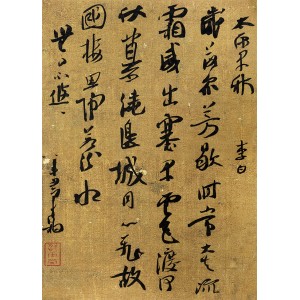 太原早秋 李白
歲落眾芳歇時當大火流
霜威出塞早雲色渡河
秋夢繞邊城月心飛故
國樓思歸若汾水
無日不悠々